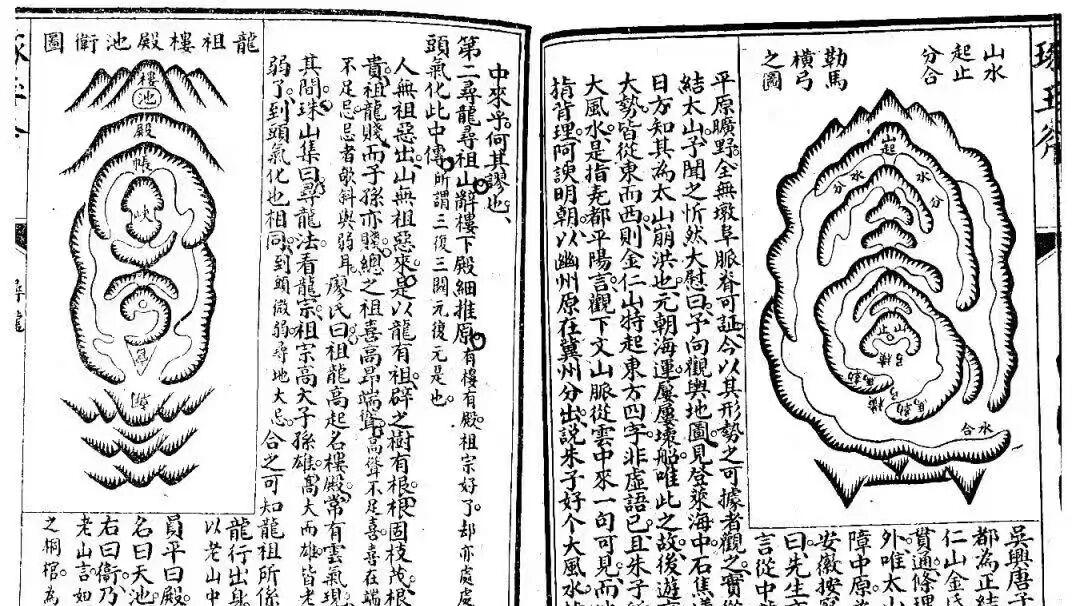 山水
起止
分合
勒馬
橫弓
之圖
山起
水分
水分
山止
弓橫
水合
吳興唐子
都為正結
仁山金
貫通條理
外唯太山
障中原
安徽按
曰先生
言從中
平原曠野全無墩阜脈脊可証今以其形勢之可據者觀之實從
結太山子聞之忻然大慰曰予向觀輿地圖見登萊海中石焦
日方知其為太山崩洪也元朝海運屢屢壞船唯此之故後遊
大勢皆從東而西則金仁山特起東方四字非虛語已且朱子
大風水是指堯都平陽言觀下文山脈從雲中來一句可見而
揹背理阿諛明朝以幽州原在冀州分出說朱子好个大風水
中來乎何其謬也
第二尋龍尋祖山辭樓下殿細推原有樓有殿祖宗好了却亦處處
頭氣化此中傳所謂三復三關元復元是也
人無祖惡出山無祖惡來是以龍有祖辟之樹有根根固枝茂根
貴祖龍賤而子孫亦賤總之祖喜高昂端聳高聳不足喜喜在端
不足忌忌者欹斜與弱耳廖氏曰祖龍高起名樓殿常有雲氣現
其間珠山集曰尋龍法看龍宗祖宗高大子孫雄高大而雄皆老
弱了到頭氣化也相同到頭微弱尋地大忌合之可知龍祖所係
龍行出身
以老山中
員平曰殿
名曰天池
右曰衛乃
老山言如
之桐棺為
龍祖樓殿池衛圖
樓
池
殿
帳
峽
尋龍